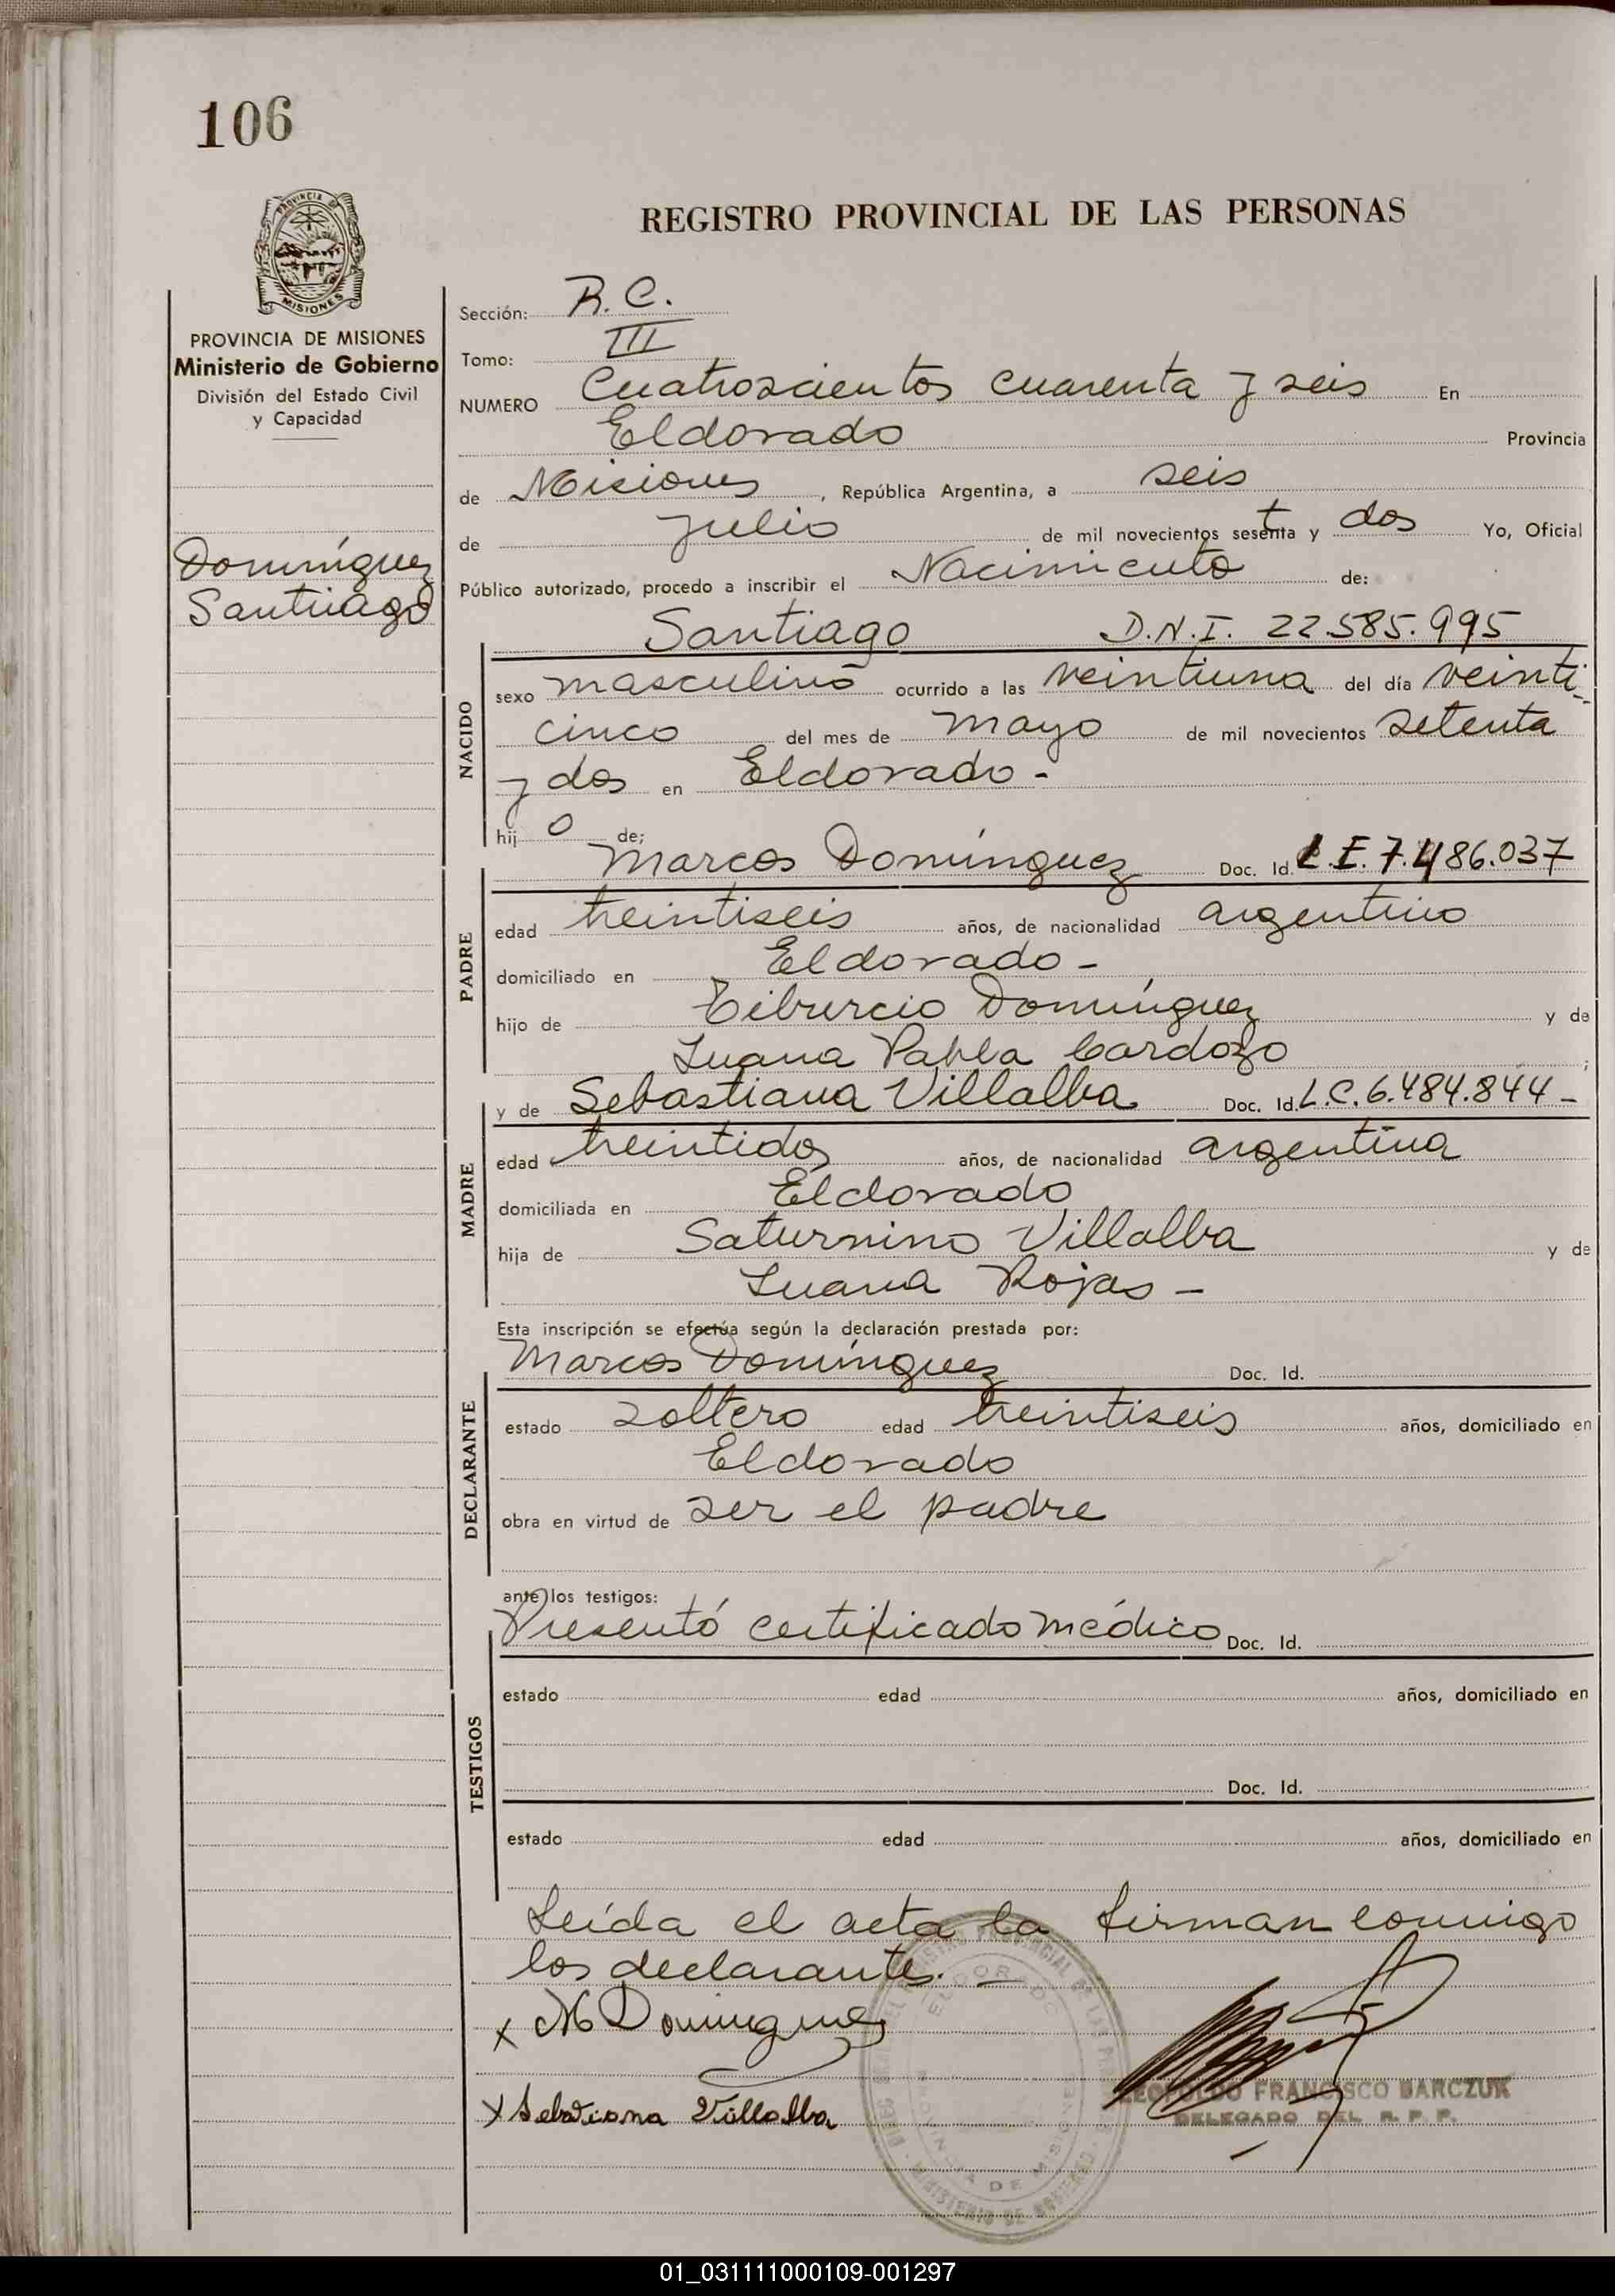 106
PROVINCIA DE
MISIONES
PROVINCIA DE MISIONES
Ministerio de Gobierno
División del Estado Civil
y Capacidad
Domínguez
Santiago
REGISTRO PROVINCIAL DE LAS PERSONAS
Sección: R. C.
Tomo: III
NUMERO Cuatroscientos cuarenta y seis En
Eldorado Provincia
de Misiones, República Argentina, a seis
de Julio de mil novecientos setenta y dos Yo, Oficial
Público autorizado, procedo a inscribir el Nacimiento de:
Santiago D.N.I. 22.585.995
NACIDO
sexo masculino ocurrido a las veintiuna del día veinti-
cinco del mes de mayo de mil novecientos setenta
y dos en Eldorado-
hij o de;
Marcos Domínguez Doc. Id. L.E. 7.486.037
PADRE
edad treintiseis años, de nacionalidad argentino
domiciliado en Eldorado-
hijo de Tiburcio Domínguez y de
Juana Pabla Cardozo ;
y de Sebastiana Villalba Doc. Id. L.C. 6.484.844-
MADRE
edad treintidos años, de nacionalidad argentina
domiciliada en Eldorado
hija de Saturnino Villalba y de
Juana Rojas-
Esta inscripción se efectúa según la declaración prestada por:
Marcos Domínguez Doc. Id.
DECLARANTE
estado soltero edad treintiseis años, domiciliado en
Eldorado
obra en virtud de ser el padre
ante los testigos:
Presentó certificado médico Doc. Id.
TESTIGOS
estado edad años, domiciliado en
Doc. Id.
estado edad años, domiciliado en
Leída el acta la firman conmigo
los declarantes.-
x M Dominguez
x Sebastiana Villalba
LEOPOLDO FRANCISCO BARCZUK
DELEGADO DEL R. P. P.
ELDORADO
PROVINCIA DE MISIONES
MINISTERIO DE GOBIERNO
01_031111000109-001297